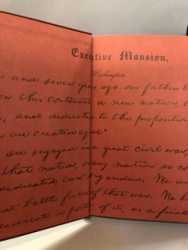 Executive Mansion,
Washington
o and seven years ago our fathers b
upon this continent, a new nation,
and dedicated to the proposition
are created equal"
are engaged in a great civil war,
that nation, any nation so co
dedicated, can long endure. We
great battle field of that war. We ha
dedicate a portion of it, as a final